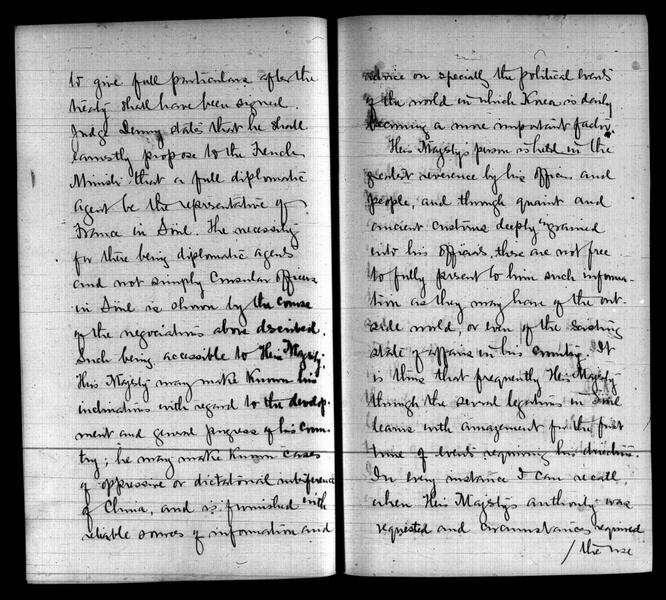 to give full particulars after the
treaty shall have been signed.
Judge Denny states that he shall
earnestly propose to the French
Minister that a full diplomatic
agent be the representative of
France in Söul. The necessity
for there being diplomatic agents
and not simply Consular officers
in Söul is shown by the course
of the negociations above described.
Such being accessible to His Majesty;
His Majesty may make known his
inclinations with regard to the develop-
ment and general progress of his Coun-
try; he may make known cases
of oppressive or dictational interference
of China, and is furnished with
reliable sources of information and
advice on specially the political events
of the world in which Korea is daily
becoming a more important factor.
His Majesty's person is held in the
greatest reverence by his officers and
people, and through quaint and
ancient customs deeply grained
into his officials, these are not free
to fully present to him such informa-
tion as they may have of the out-
side world, or even of the existing
state of affairs in his country. It
is thus that frequently His Majesty
through the several legations in Söul
learns with amazement for the first
time of events requiring his direction.
In every instance I can recall,
when His Majesty's authority was
requested and circumstances required
/ the use